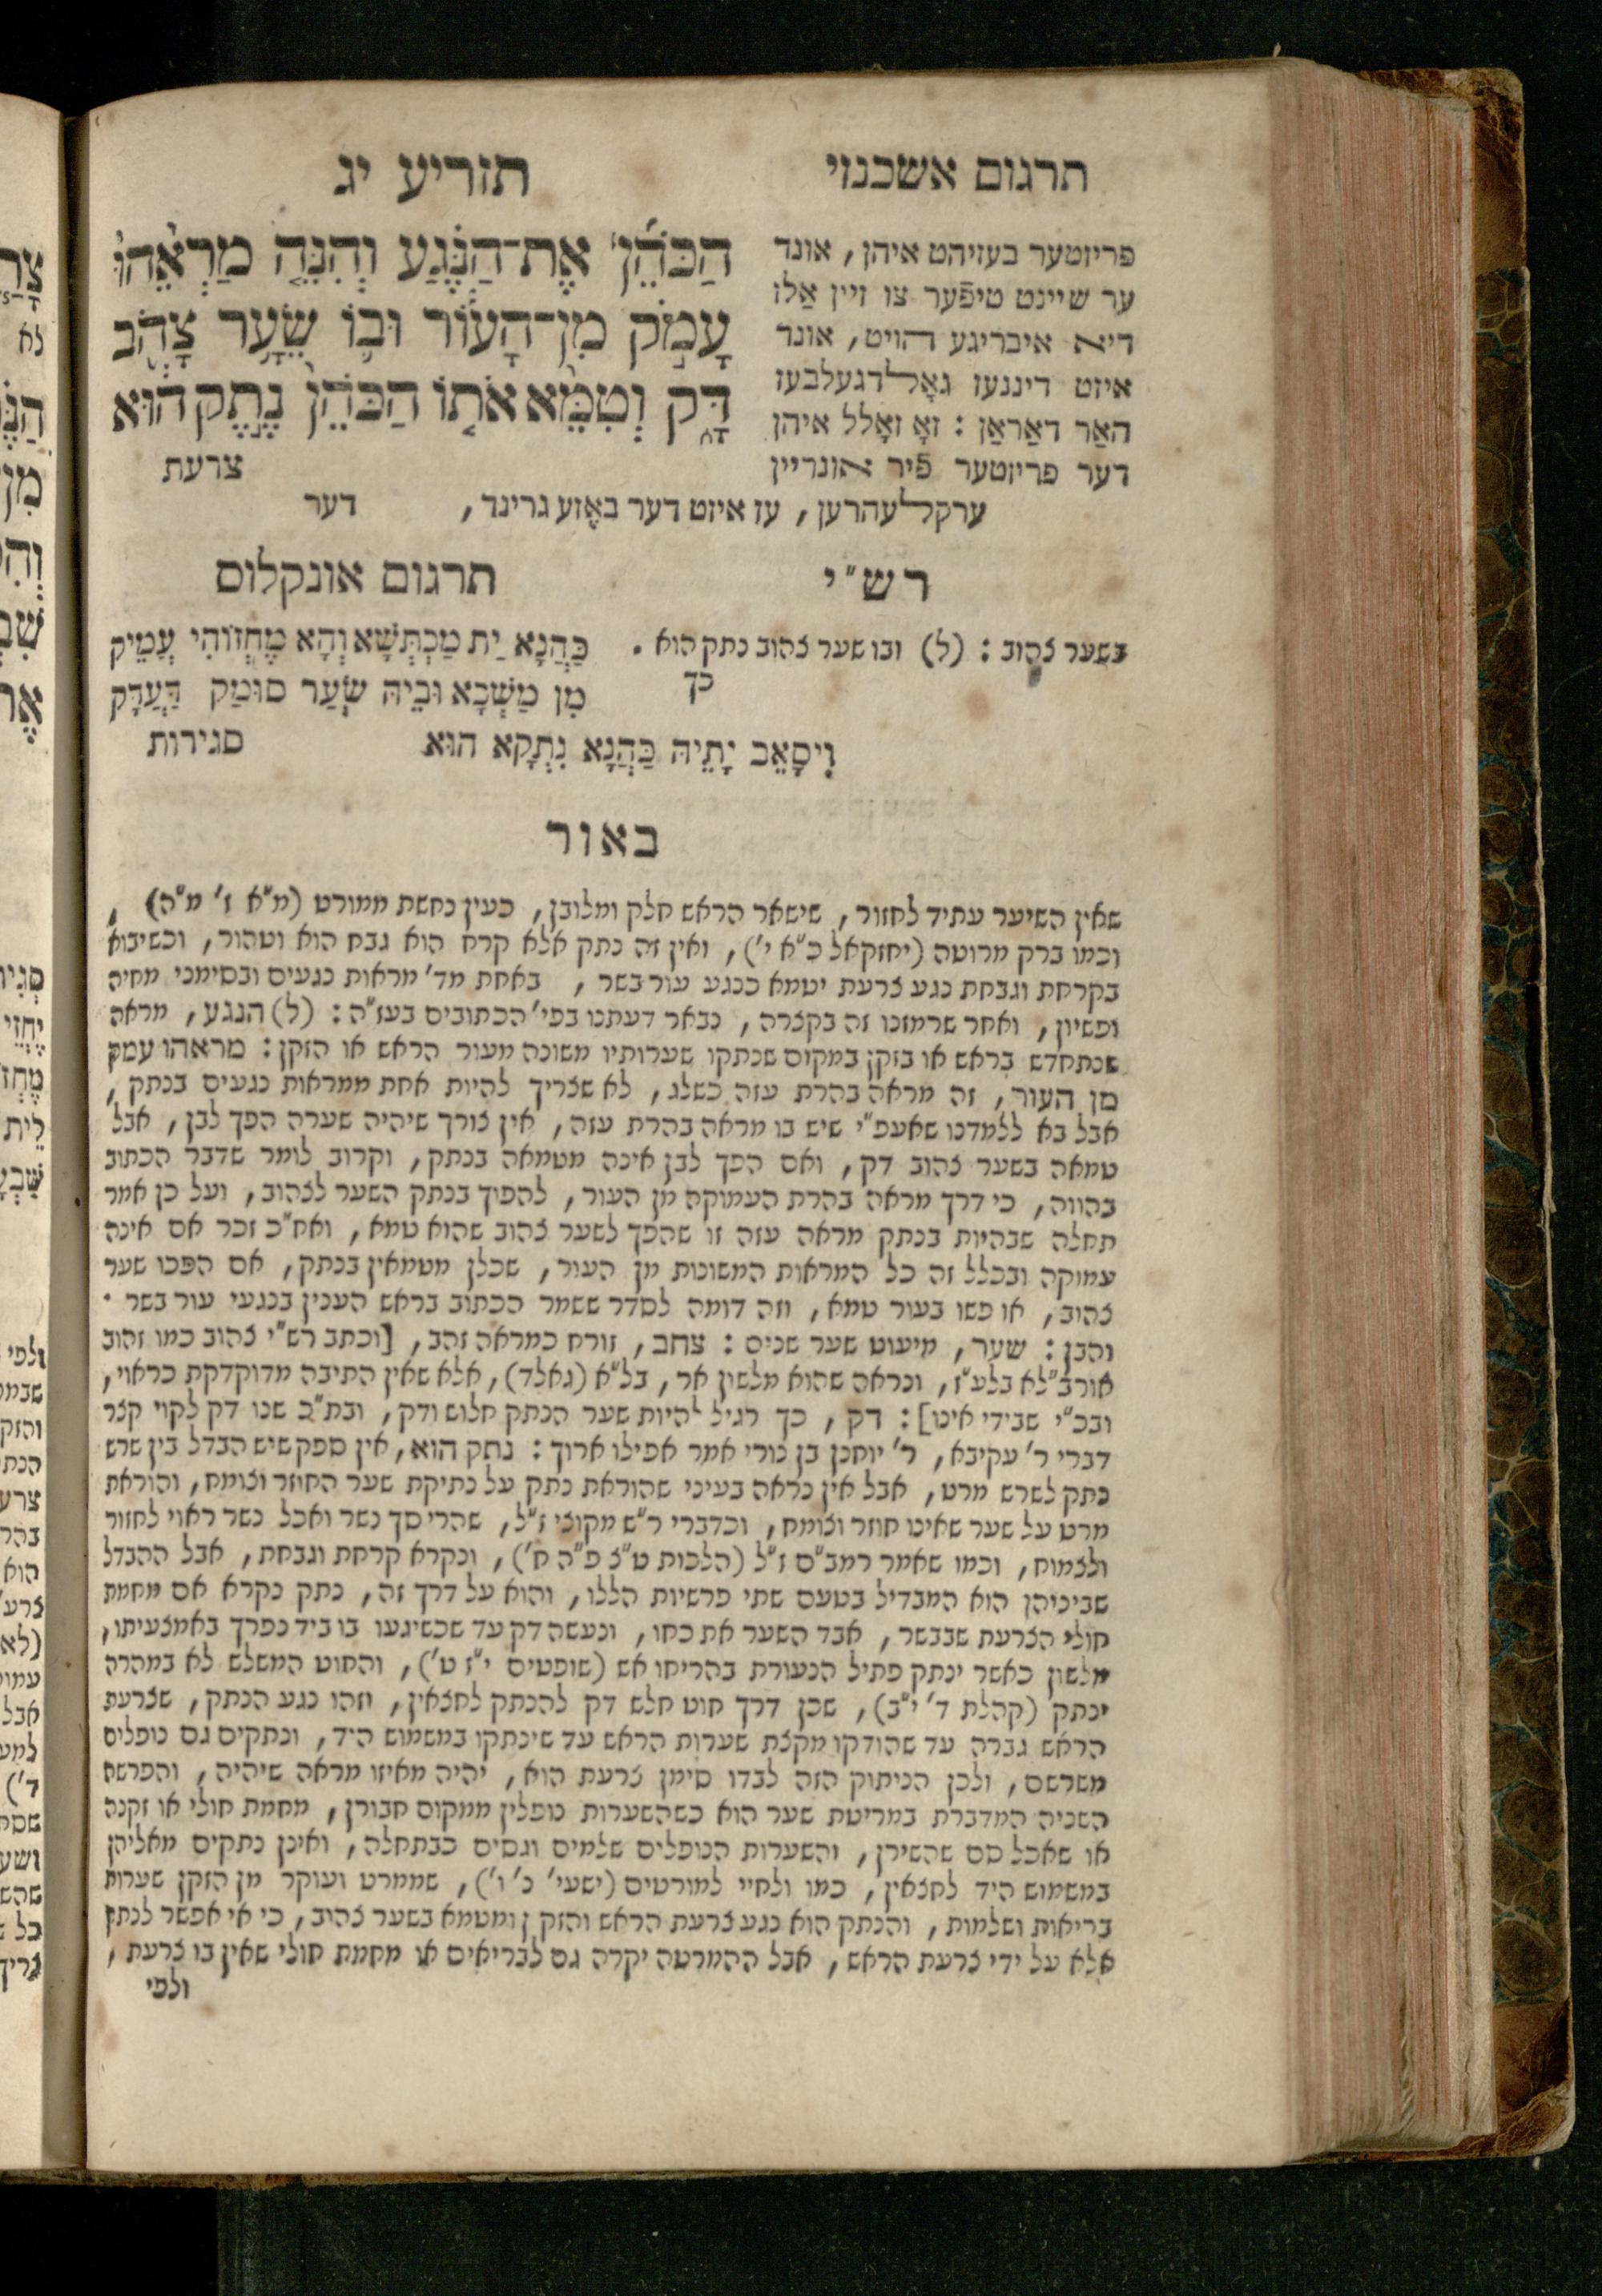 תרגום אשכנזי
תזריע יג
הַכֹּהֵ֜ן אֶת־הַנֶּ֗גַע וְהִנֵּ֤ה מַרְאֵ֙הוּ֙
עָמֹ֣ק מִן־הָע֔וֹר וּב֛וֹ שֵׂעָ֥ר צָהֹ֖ב
דָּ֑ק וְטִמֵּ֨א אֹת֤וֹ הַכֹּהֵן֙ נֶ֣תֶק ה֔וּא
צרעת
פריזטער בעזיהט איהן, אונד
ער שיינט טיפֿער צו זיין אַלז
דיא איבריגע הויט, אונד
איזט דיננעז גאָלדגעלבעז
האַר דאַראַן : זאָ זאָלל איהן
דער פריזטער פֿיר אונריין
ערקלעהרען, עז איזט דער באָזע גרינד,
דער
רש״י
בשער צהוב : (ל) ובו שער צהוב נתק הוא .
כך
תרגום אונקלוס
כַּהֲנָא יַת מַכְתָּשָׁא וְהָא מֶחֱזוֹהִי עֲמֵיק
מִן מַשְׁכָּא וּבֵיהּ שְׂעַר סוּמַק דַּעֲדַק
וִיסָאֵב יָתֵיהּ כַּהֲנָא נִתְקָא הוּא
סגירות
באור
שאין השיער עתיד לחזור, שישאר הראש חלק ומלובן, כעין נחשת ממורט (מ״א ז׳ מ״ה) ,
וכמו ברק מרוטה (יחזקאל כ״א י׳), ואין זה נתק אלא קרח הוא גבח הוא וטהור, וכשיבוא
בקרחת וגבחת נגע צרעת יטמא כנגע עור בשר , באחת מד׳ מראות נגעים ובסימני מחיה
ופשיון, ואחר שרמזנו זה בקצרה, נבאר דעתנו בפי׳ הכתובים בעז״ה : (ל) הנגע, מראה
שנתחדש בראש או בזקן במקום שנתקו שערותיו משונה מעור הראש או הזקן : מראהו עמק
מן העור, זה מראה בהרת עזה כשלג, לא שצריך להיות אחת ממראות נגעים בנתק,
אבל בא ללמדנו שאעפ״י שיש בו מראה בהרת עזה, אין צורך שיהיה שערה הפך לבן, אבל
טמאה בשער צהוב דק, ואם הפך לבן אינה מטמאה בנתק, וקרוב לומר שדבר הכתוב
בהווה, כי דרך מראה בהרת העמוקה מן העור, להפוך בנתק השער לצהוב, ועל כן אמר
תחלה שבהיות בנתק מראה עזה זו שהפך לשער צהוב שהוא טמא, ואח״כ זכר אם אינה
עמוקה ובכלל זה כל המראות המשונות מן העור, שכלן מטמאין בנתק, אם הפכו שער
צהוב, או פשו בעור טמא, וזה דומה לסדר ששמר הכתוב בראש הענין בנגעי עור בשר .
והבן : שער, מיעוט שער שנים : צהב, זורח כמראה זהב, [וכתב רש״י צהוב כמו זהוב
אורב״לא בלע״ז, ונראה שהוא מלשון אר, בל״א (גאלד), אלא שאין התיבה מדוקדקת כראוי,
ובכ״י שבידי אינו] : דק, כך רגיל להיות שער הנתק חלוש ודק, ובת״כ שנו דק לקוי קצר
דברי ר׳ עקיבא, ר׳ יוחנן בן נורי אמר אפילו ארוך : נתק הוא, אין ספק שיש הבדל בין שרש
נתק לשרש מרט, אבל אין נראה בעיני שהוראת נתק על נתיקת שער החוזר וצומח, והוראת
מרט על שער שאינו חוזר וצומח, וכדברי ר״ש מקוצי ז״ל, שהרי סך נשר ואכל נשר ראוי לחזור
ולצמוח, וכמו שאמר רמב״ם ז״ל (הלכות ט״צ פ״ה ח׳), ונקרא קרחת וגבחת, אבל ההבדל
שביניהן הוא המבדיל בטעם שתי פרשיות הללו, והוא על דרך זה, נתק נקרא אם מחמת
חולי הצרעת שבבשר, אבד השער את כחו, ונעשה דק עד שכשיגעו בו ביד נפרך באמצעיתו,
מלשון כאשר ינתק פתיל הנעורת בהריחו אש (שופטים י״ז ט׳), והחוט המשלש לא במהרה
ינתק (קהלת ד׳ י״ב), שכן דרך חוט חלש דק להנתק לחצאין, וזהו נגע הנתק, שצרעת
הראש גברה עד שהודקו מקצת שערות הראש עד שינתקו במשמוש היד, ונתקים גם נופלים
משרשם, ולכן הניתוק הזה לבדו סימן צרעת הוא, יהיה מאיזו מראה שיהיה, והפרשה
השניה המדברת במריטת שער הוא כשהשערות נופלין ממקום חבורן, מחמת חולי או זקנה
או שאכל סם שהשירן, והשערות הנופלים שלמים וגסים כבתחלה, ואינן נתקים מאליהן
במשמוש היד לחצאין, כמו ולחיי למורטים (ישעי׳ נ׳ ו׳), שממרט ועוקר מן הזקן שערות
בריאות ושלמות, והנתק הוא נגע צרעת הראש והזקן ומטמא בשער צהוב, כי אי אפשר לנתק
אלא על ידי צרעת הראש, אבל ההמרטה יקרה גם לבריאים או מחמת חולי שאין בו צרעת,
ולפי